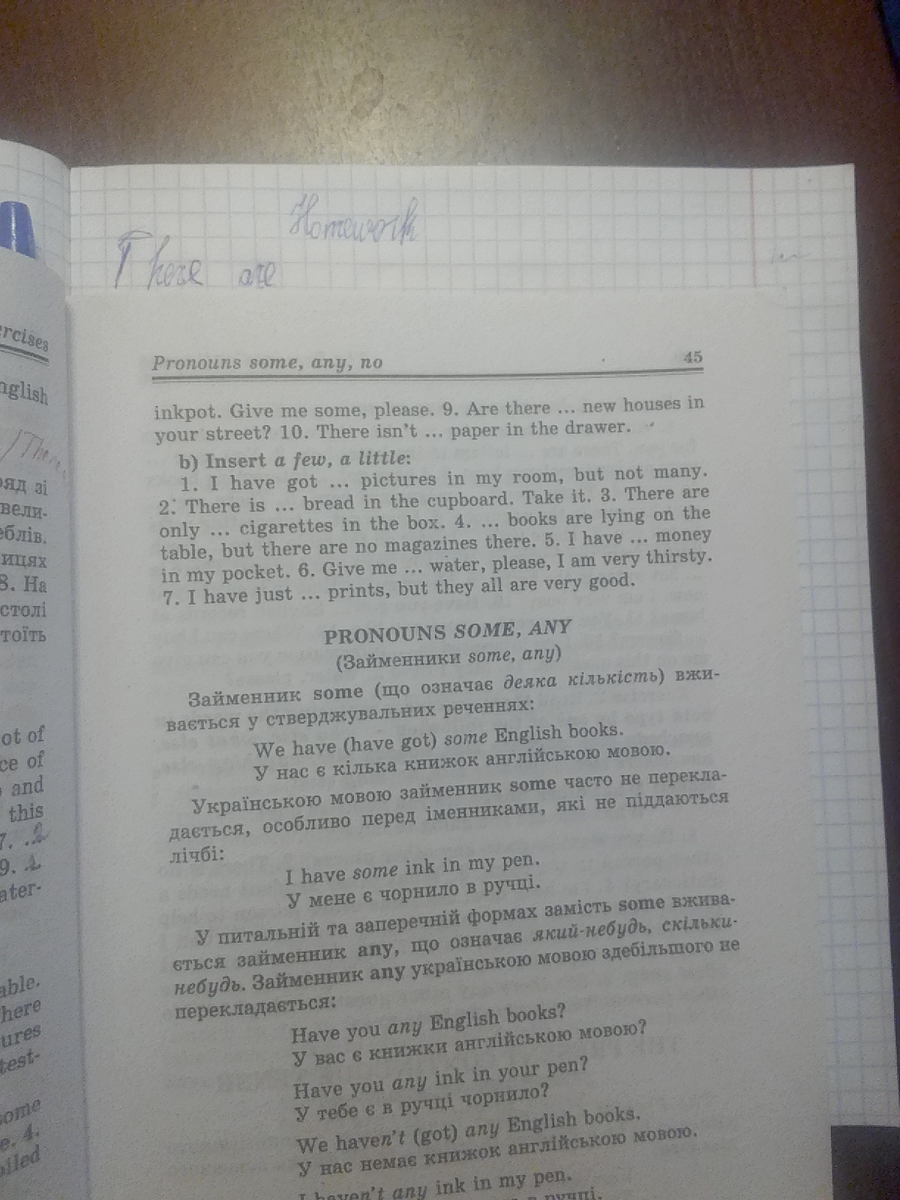 Homework
There are
ercises
nglish
яд зі
вели-
еблів.
ицях
8. На
столі
тоїть
ot of
ce of
and
this
7.
9.
ater-
able.
here
ures
test-
ome
e. 4.
oiled
Pronouns some, any, no 45
inkpot. Give me some, please. 9. Are there ... new houses in
your street? 10. There isn't ... paper in the drawer.
b) Insert a few, a little:
1. I have got ... pictures in my room, but not many.
2. There is ... bread in the cupboard. Take it. 3. There are
only ... cigarettes in the box. 4. ... books are lying on the
table, but there are no magazines there. 5. I have ... money
in my pocket. 6. Give me ... water, please, I am very thirsty.
7. I have just ... prints, but they all are very good.
PRONOUNS SOME, ANY
(Займенники some, any)
Займенник some (що означає деяка кількість) вжи-
вається у стверджувальних реченнях:
We have (have got) some English books.
У нас є кілька книжок англійською мовою.
Українською мовою займенник some часто не перекла-
дається, особливо перед іменниками, які не піддаються
лічбі:
I have some ink in my pen.
У мене є чорнило в ручці.
У питальній та заперечній формах замість some вжива-
ється займенник any, що означає який-небудь, скільки-
небудь. Займенник any українською мовою здебільшого не
перекладається:
Have you any English books?
У вас є книжки англійською мовою?
Have you any ink in your pen?
У тебе є в ручці чорнило?
We haven't (got) any English books.
У нас немає книжок англійською мовою.
I haven't any ink in my pen.
в ручці.